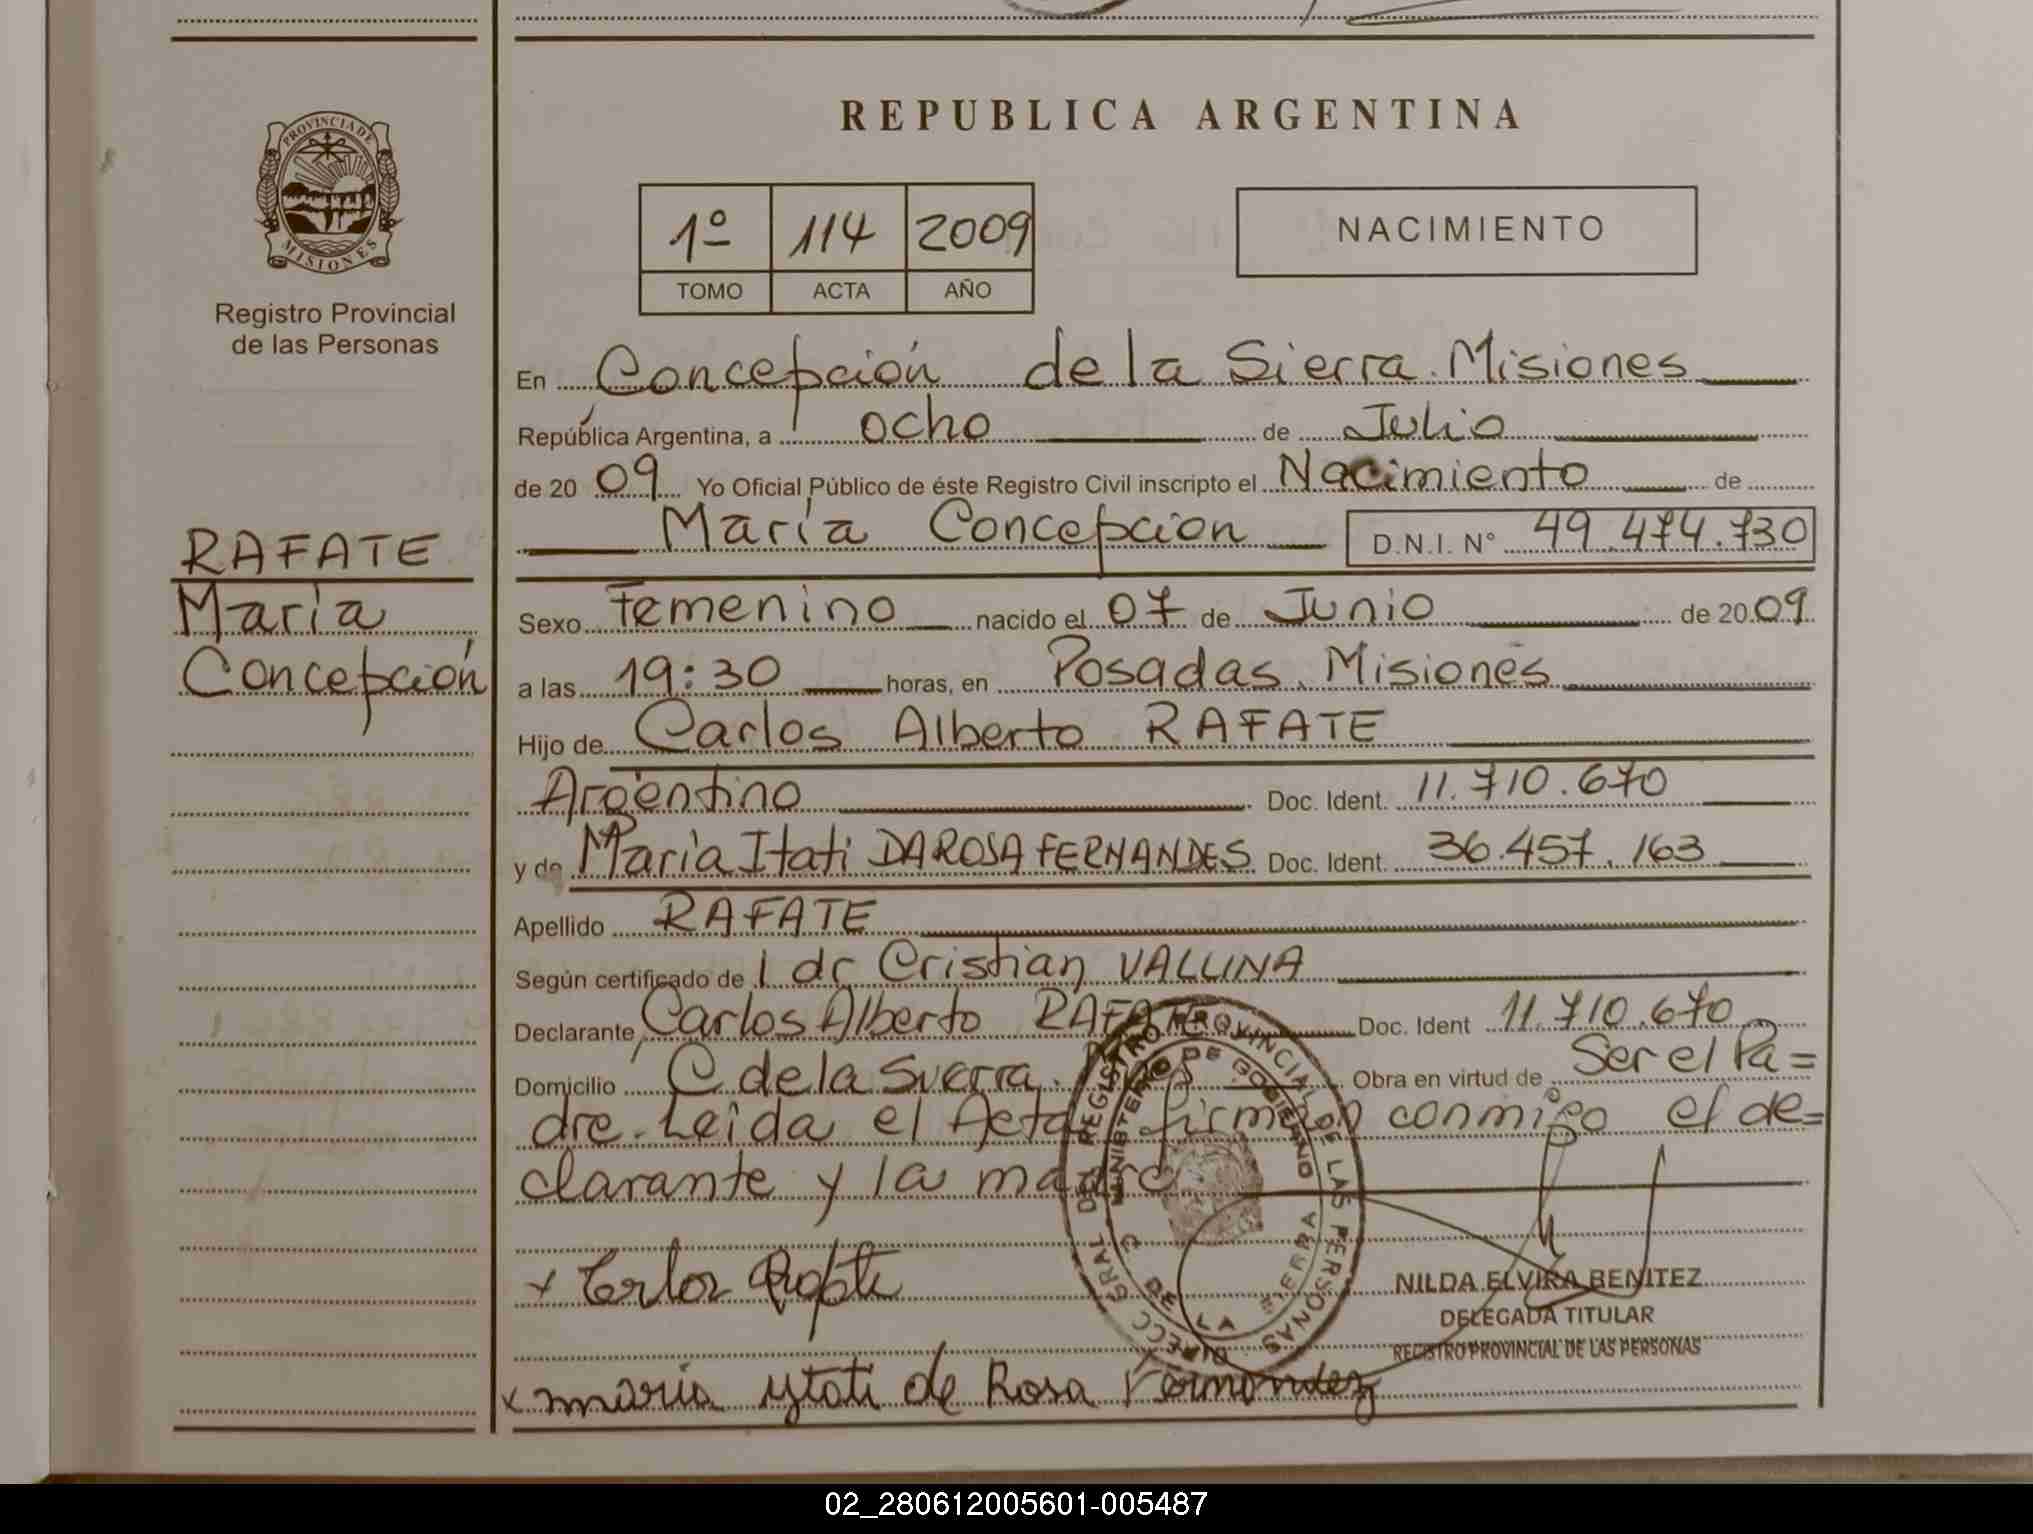 REPUBLICA ARGENTINA
PROVINCIA DE
MISIONES
Registro Provincial
de las Personas
1º 114 2009
TOMO ACTA AÑO
NACIMIENTO
En Concepción de la Sierra. Misiones
República Argentina, a ocho de Julio
de 20 09 Yo Oficial Público de éste Registro Civil inscripto el Nacimiento de
María Concepcion D.N.I. Nº 49.474.730
RAFATE
María
Concepción
Sexo Femenino nacido el 07 de Junio de 20 09
a las 19:30 horas, en Posadas. Misiones
Hijo de Carlos Alberto RAFATE
Argentino Doc. Ident. 11.710.670
y de María Itati DA ROSA FERNANDES Doc. Ident. 36.457.163
Apellido RAFATE
Según certificado de l dr Cristian VALLINA
Declarante Carlos Alberto RAFATE Doc. Ident 11.710.670
Domicilio C de la Sierra. Obra en virtud de Ser el Pa=
dre. Leida el Acta firman conmigo el de=
clarante y la madre
x Carlos Rafate
NILDA ELVIRA BENITEZ
DELEGADA TITULAR
REGISTRO PROVINCIAL DE LAS PERSONAS
x maria ytati de Rosa Fernandez
DIRECC. GRAL. DEL REGISTRO PROVINCIAL DE LAS PERSONAS
MINISTERIO DE GOBIERNO
C. DE LA SIERRA
02_280612005601-005487